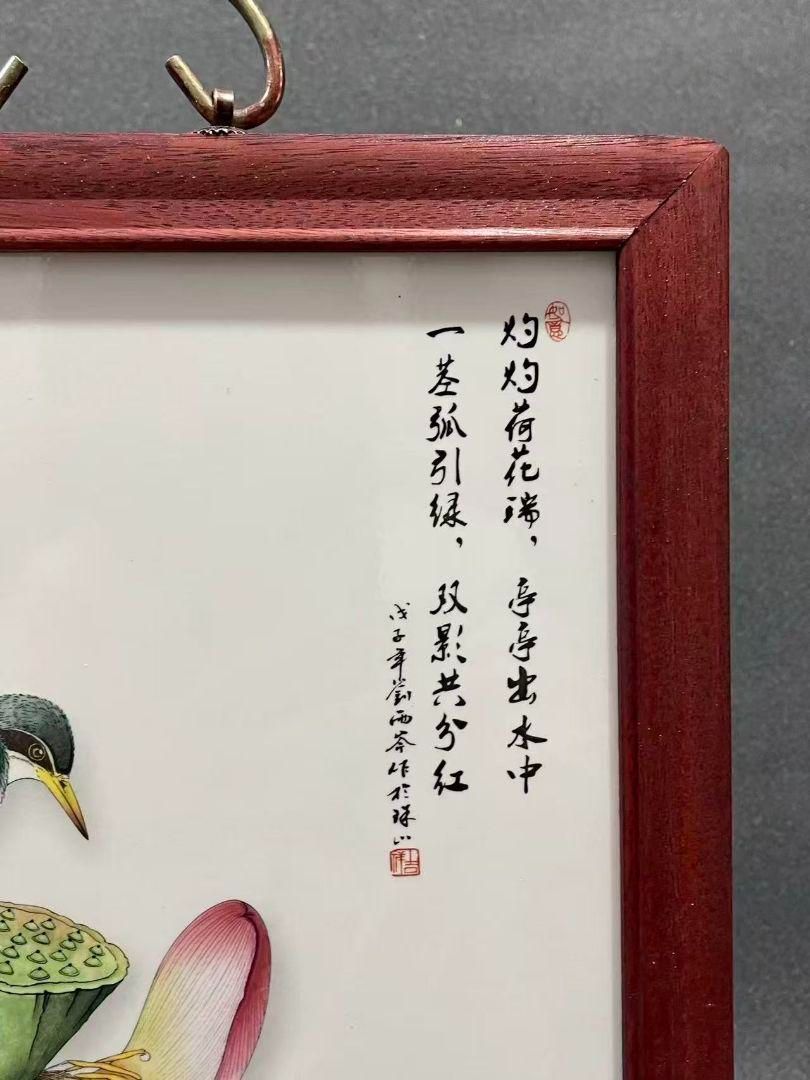 如意
灼灼荷花瑞，亭亭出水中
一茎孤引绿，双影共分红
戊子年劉雨岑作於珠山
吉祥